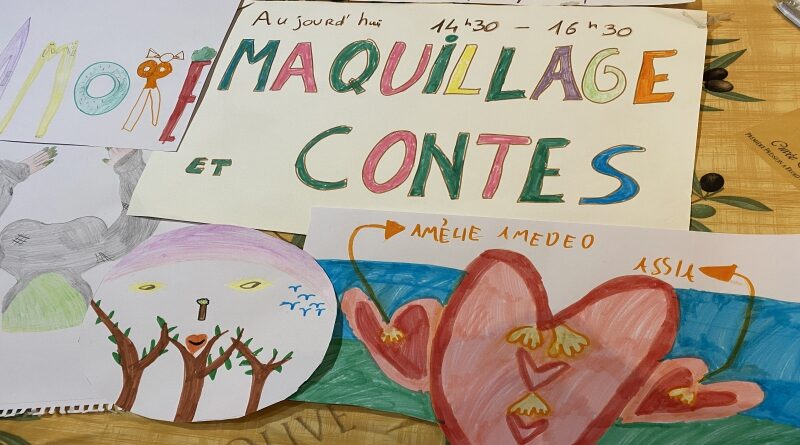 Aujourd'hui 14h30 - 16h30
MAQUILLAGE
ET CONTES
AMORE
AMÈLIE AMEDEO
ASSIA